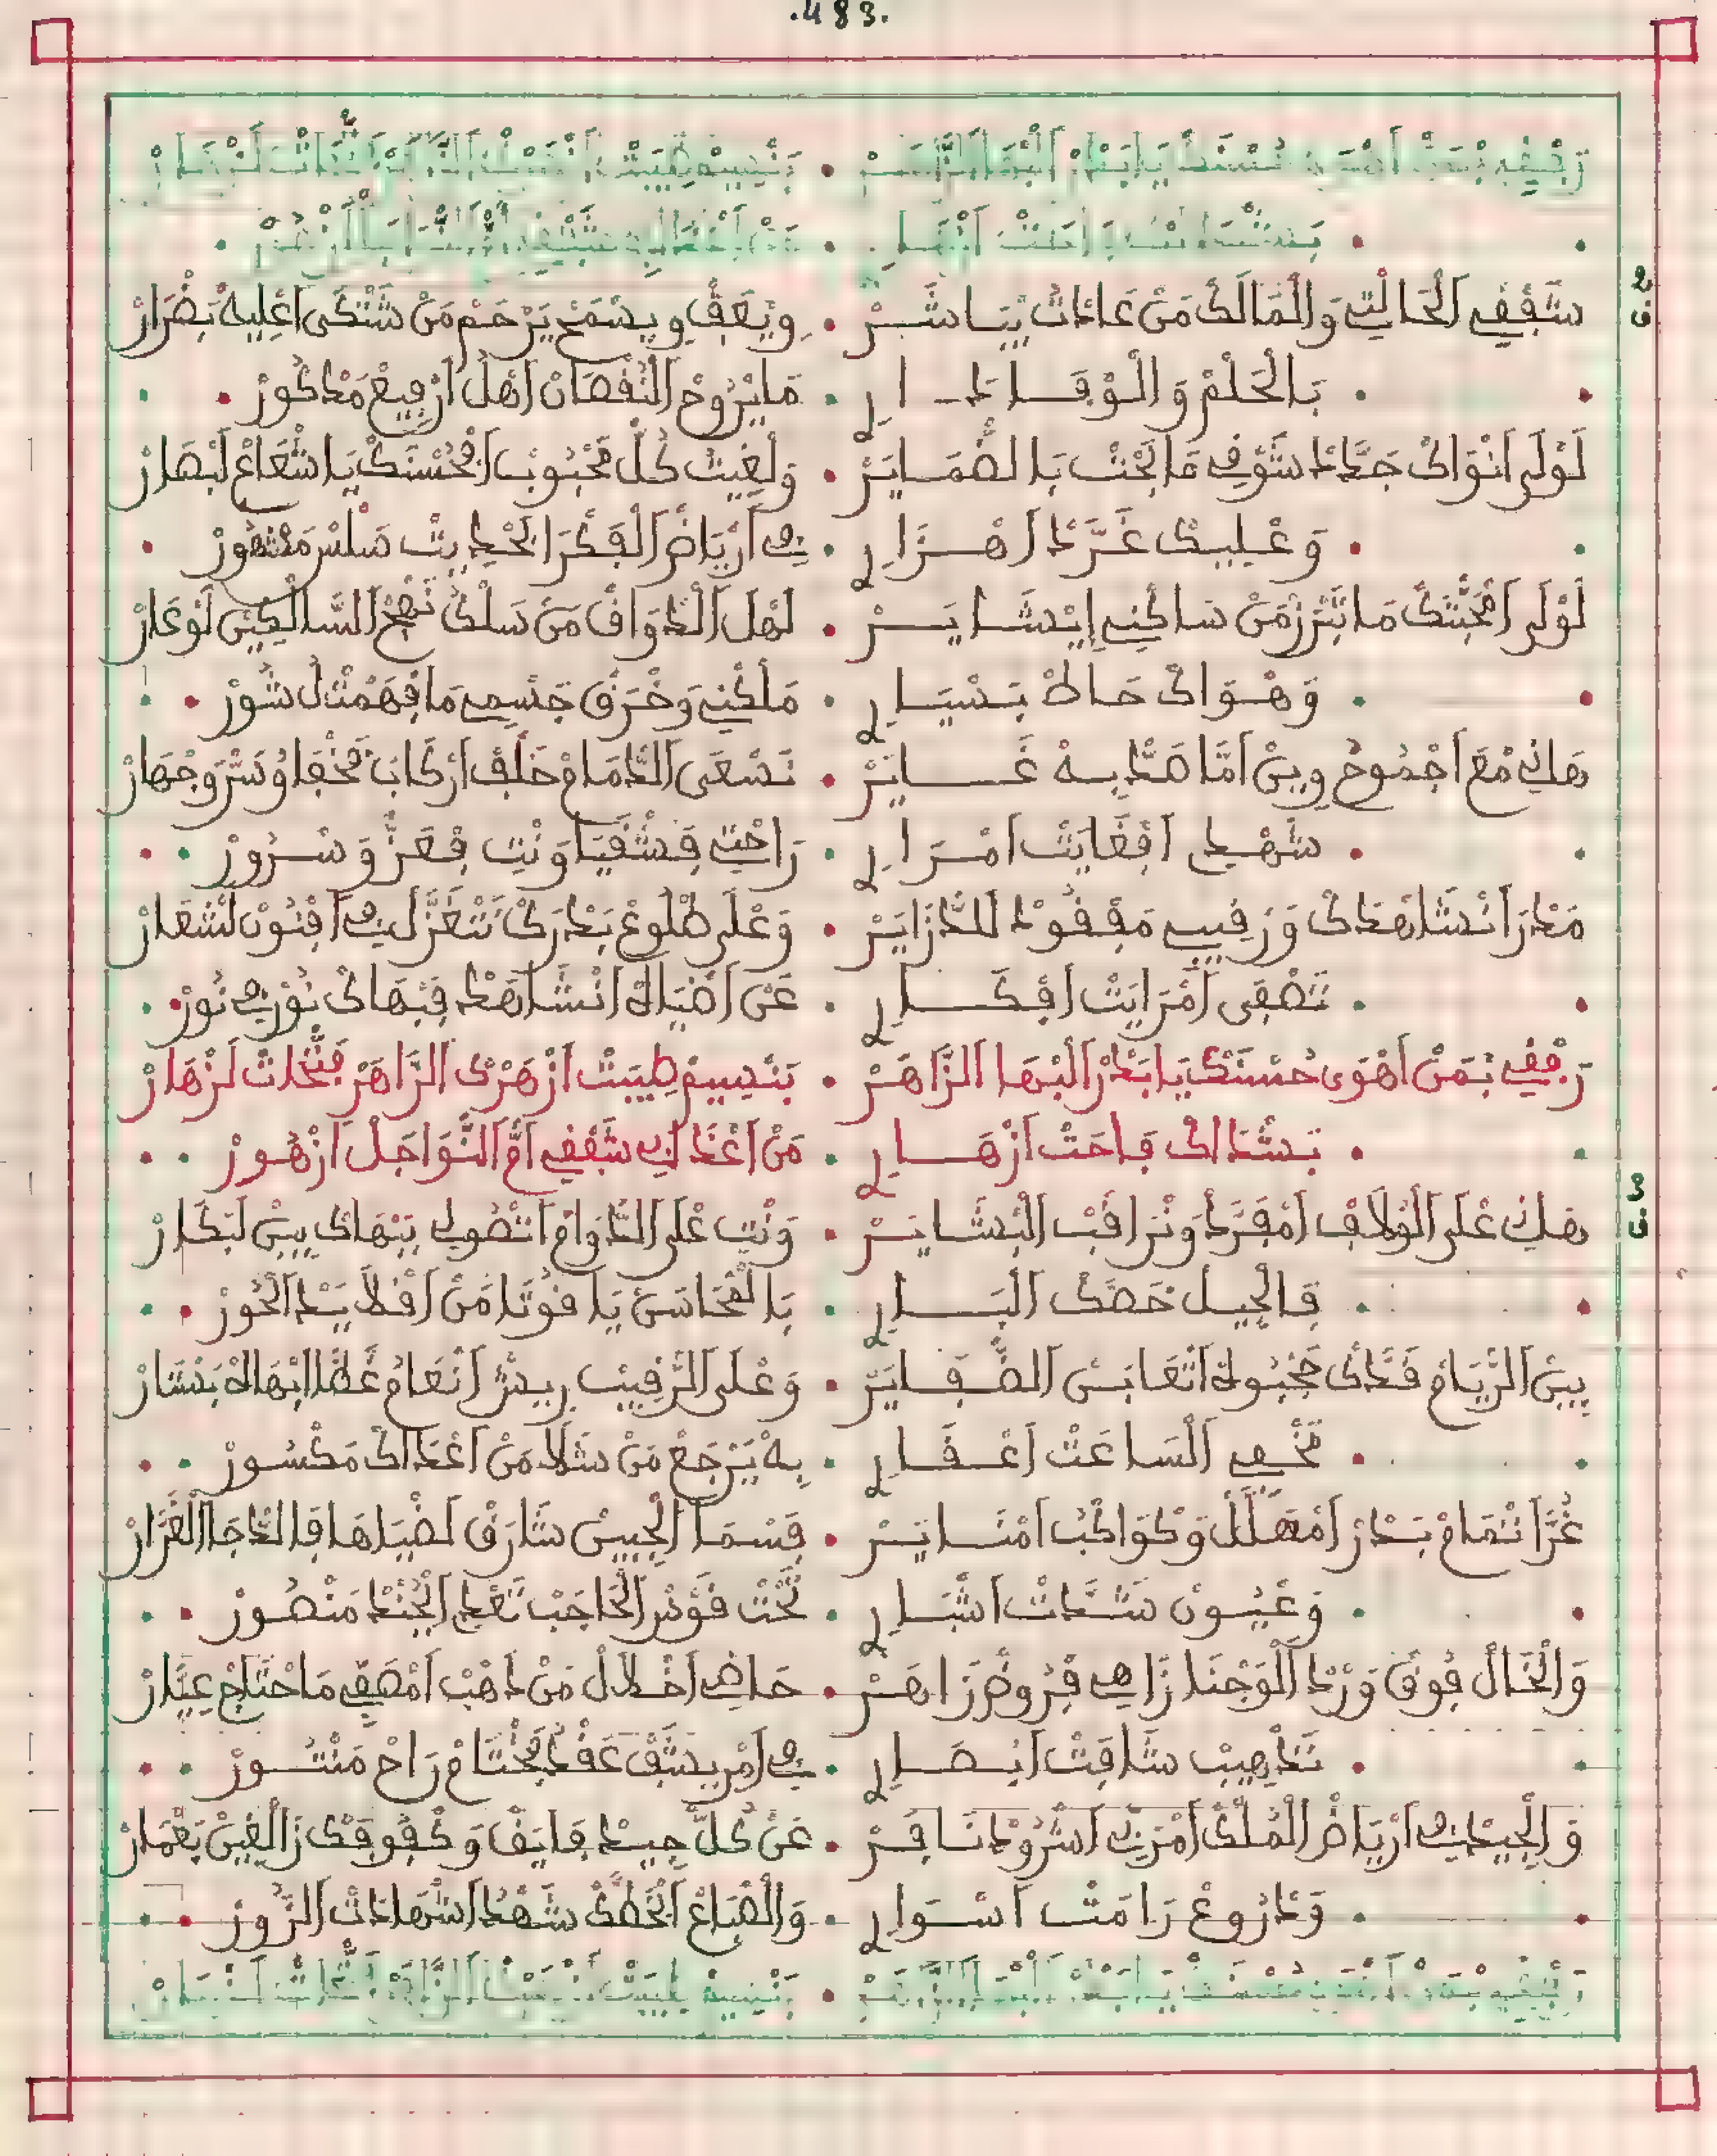 .483.
رَفْقِي بْمَنْ اَهْوَى حُسْنَكْ يَا بَدْرْ اَلْبْهَا اَلزَّاهَرْ • بَنْسِيمْ طِيبَتْ اَزْهَرْكْ اَلزَّاهَرْ فَتْحَاتْ لَزْهَارْ
• بَشْدَاكْ فَاحَتْ اَزْهَارِي •
2 ف
شَفْقِي اَلْحَالْتِي وَالْمَالَكْ مَنْ عَادَاتْ يْيَاشَرْ • وِيْعَفْ وِيسْمَحْ يَرْحَمْ مَنْ شَتْكَى اعْلِيهْ بَضْرَارْ
• بَالْحَلْمْ وَالْوْقَارِي • مَا يْرُوحْ النُّقْصَانْ اَهْلْ اَرْفِيعْ مَدْكُورْ •
لَوْلَى اَهْوَاكْ جَدَّدْ شَوْقِي مَا بَحْتْ بَالضْمَايَرْ • وَلْغِيتْ كُلّ مَحْبُوبْ اَفْحُسْنَكْ يَا شْعَاعْ لَبْهَارْ
• وَعْلِيكْ غَرَّدْ اَهْزَارِي • فِي اَرْيَاضْ اَلْفَكْرَا بَحْدِيثْ سَلْسْ مَشْهُورْ •
لَوْلَى اَمْحَبْتَكْ مَا نَبْرَزْ مَنْ سَاكْنِي إِيْشَايَرْ • لَهْلْ اَلْدْوَاقْ مَنْ سَلْكُ نَهْجْ اَلسَّالْكِينْ لَوْعَارْ
• وَهْوَاكْ حَاطْ بَسْيَارِي • مَلَّكْنِي وَخْرَقْ جَسْمِي مَا فْهَمْتْ لُ شُورْ •
هَانِي مْعَ اَجْمُوحْ وِينْ اَمَّا هَدّْ بِهْ غَايَرْ • نَسْعَى اَلدّْمَامْ خَلْفْ اَرْكَابَ مَخْفَاوْ سَرّْ وَجْهَارْ
• شَهْدِي اَفْغَايْتْ اَمْرَارِي • رَاحْتِي فَشْقَيَا وَنْتِ فْعَزّْ وَسْرُورْ •
مَدْرَا نْشَاهْدَكْ وَرْقِيبِي مَفْقُودْ لَلدّْزَايَرْ • وَعْلَى طْلُوعْ بَدْرَكْ نَتْغَزَّلْ فِي اَفْنُونْ لَشْعَارْ
• تَصْفَى اَمْرَايَتْ اَفْكَارِي • عَنْ اَضْيَاكْ اَنْشَاهَدْ فَبْهَاكْ نُورْ فِي نُورْ •
رَفْقِي بْمَنْ اَهْوَى حُسْنَكْ يَا بَدْرْ اَلْبْهَا اَلزَّاهَرْ • بَنْسِيمْ طِيبَتْ اَزْهَرْكْ اَلزَّاهَرْ فَتْحَاتْ لَزْهَارْ
• بَشْدَاكْ فَاحَتْ اَزْهَارِي • مَنْ اَعْدَابِي شَفْقِي اَمّْ اَلنّْوَاجَلْ اَزْهُورْ •
3 ف
هَانِي عْلَى اَلْوْلَافْ اَمْفَرَّدْ وَنْرَاقَبْ اَلْبْشَايَرْ • وَنْتِ عْلَى اَلدّْوَامْ اَتْصُولِي بَبْهَاكْ بِينْ لَبْكَارْ
• فَالْجِيلْ خَصَّكْ اَلْبَارِي • بَالْمْحَاسَنْ يَا فُوتَا مَنْ اَقْلَايَدْ اَلْحُورْ •
بِينْ اَلرّْيَامْ قَدَّكْ مَجْبُولَ اَثْعَابَنْ اَلضّْفَايَرْ • وَعْلَى اَلرّْقِيبْ رِيشْ اَنْعَامْ غَطَّا اَبْهَاهْ يَنْشَارْ
• تَمْحِي اَلْسَاعَتْ اَعْقَارِي • بِهْ يَرْجَعْ مَنْ شَلَّا مَنْ اَعْدَاكْ مَكْسُورْ •
غُرَّا تْمَامْ بَدْرْ اَمْهَلَّلْ وَكْوَاكْبْ اَمْنَايَرْ • قِسْمَا اَلْجْبِينْ شَارَقْ لَضْيَاهَا فَالدّْجَا اَلْغَرَّارْ
• وَعْيُونْ شَدَّاتْ اَشْبَارِي • تَحْتْ قَوْسْ اَلْحَاجَبْ تَعْدِي اَلْجُنْدْ مَنْصُورْ •
وَالْخَالْ فُوقْ وَرْدْ اَلْوَجْنَا زَاهِي فْرُوضْ زَاهَرْ • حَاضِي اَخْلَالْ مَنْ دَهْبْ اَمْصَفِّي مَا حْتَاجْ عِيَّارْ
• تَدْهِيبْ شَافَتْ اَبْصَارِي • فِي اَمْرِيشَفْ عَقْدْ بَخْتَامْ رَاحْ مَنْثُورْ •
وَالْجِيدْ فِي اَرْيَاضْ اَلْمُلْكْ اَمْرَبِّي اَشْرُودْ نَافَرْ • عَنْ كُلّْ جِيدْ فَايَقْ وَكْفُوفَكْ زَالْغِينْ بَغْمَارْ
• وَدْرُوعْ رَامَتْ اَسْوَارِي • وَالصّْبَاعْ اَلْخَطَّكْ شَهْدْ اَشْهَادَاتْ اَلزُّورْ •
رَفْقِي بْمَنْ اَهْوَى حُسْنَكْ يَا بَدْرْ اَلْبْهَا اَلزَّاهَرْ • بَنْسِيمْ طِيبَتْ اَزْهَرْكْ اَلزَّاهَرْ فَتْحَاتْ لَزْهَارْ